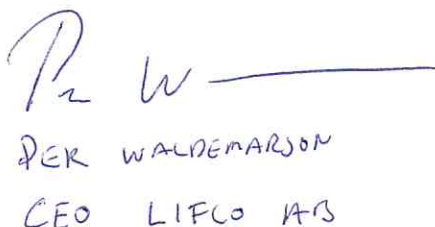 Per W
PER WALDEMARSON
CEO LIFCO AB